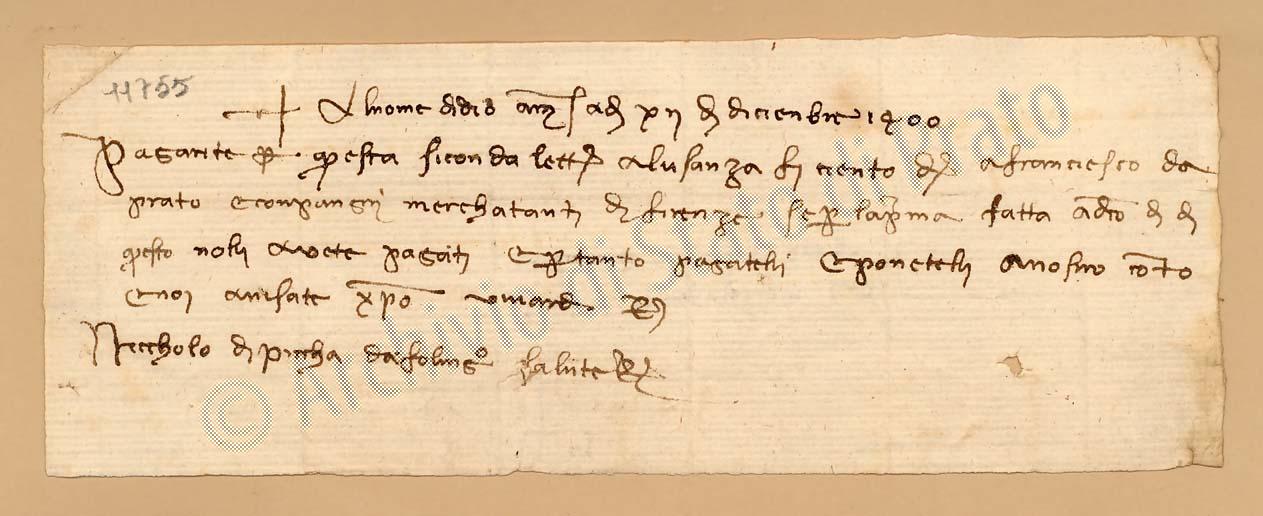 11755
† Al nome di dio am̄ adj xij dj diciembre 1400
Paghate p questa siconda letta a lusanza f ciento a franciesco da
prato e conpangnj merchatantj dj firenze se p la pma fatta dj
questo nolli avete paghatj e p tanto paghatelli e ponetelli a nostro conto
e noi avisate xpo vi guardi
Niccholo dj piccha da folingo salute
© Archivio di Stato di Prato